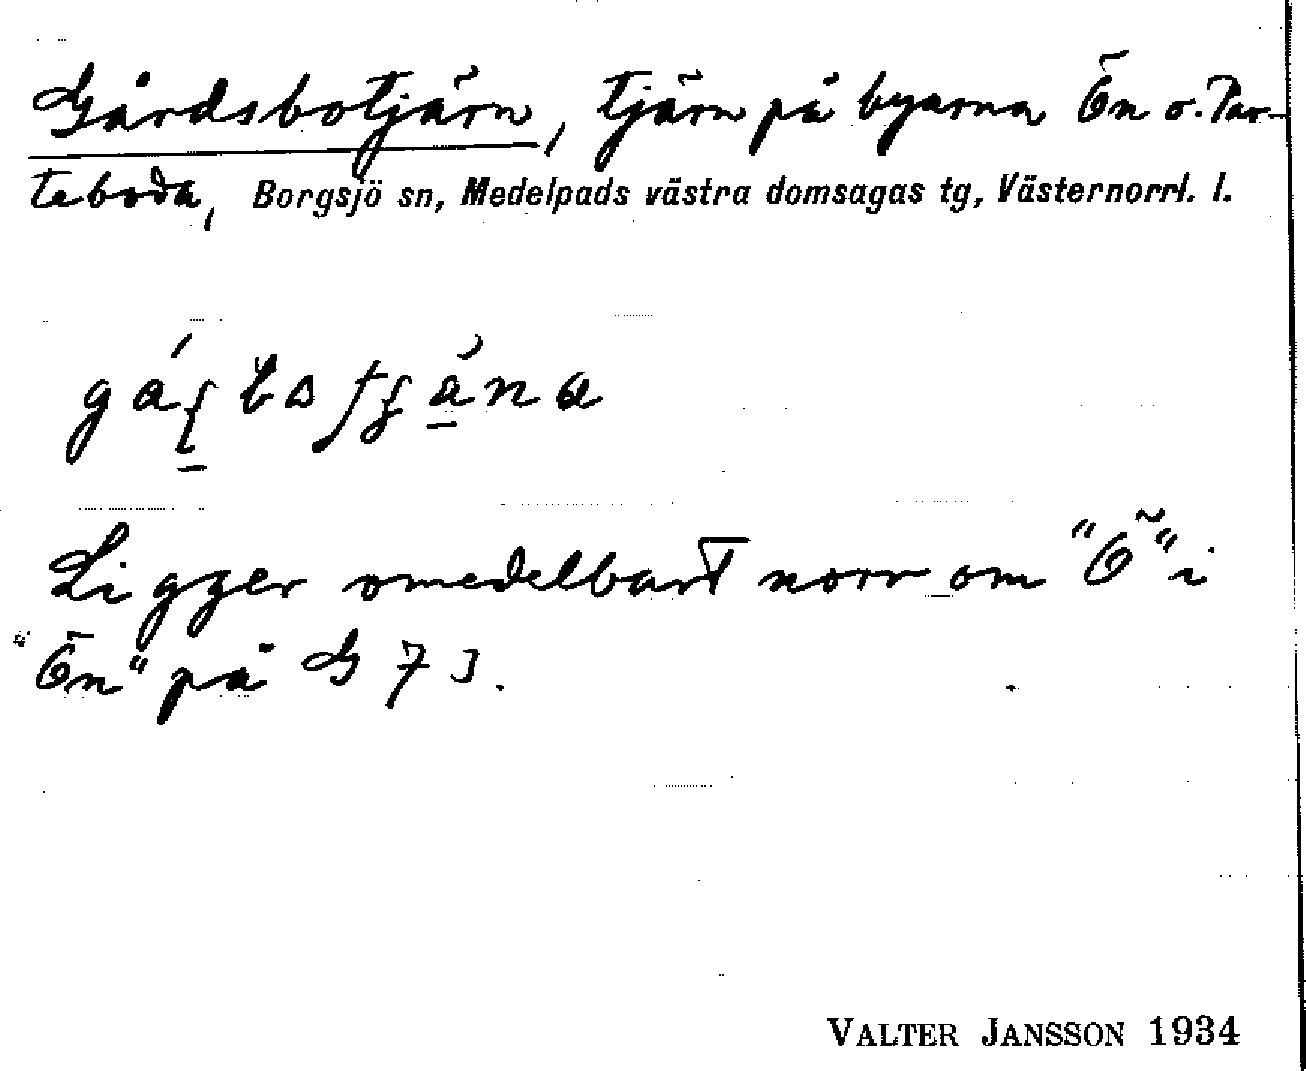 Gårdsbotjärn, tjärn på byarna Ön o. Par-
teboda, Borgsjö sn, Medelpads västra domsagas tg, Västernorrl. l.
Ligger omedelbart norr om "Ö" i
"Ön" på G 7 J.
VALTER JANSSON 1934